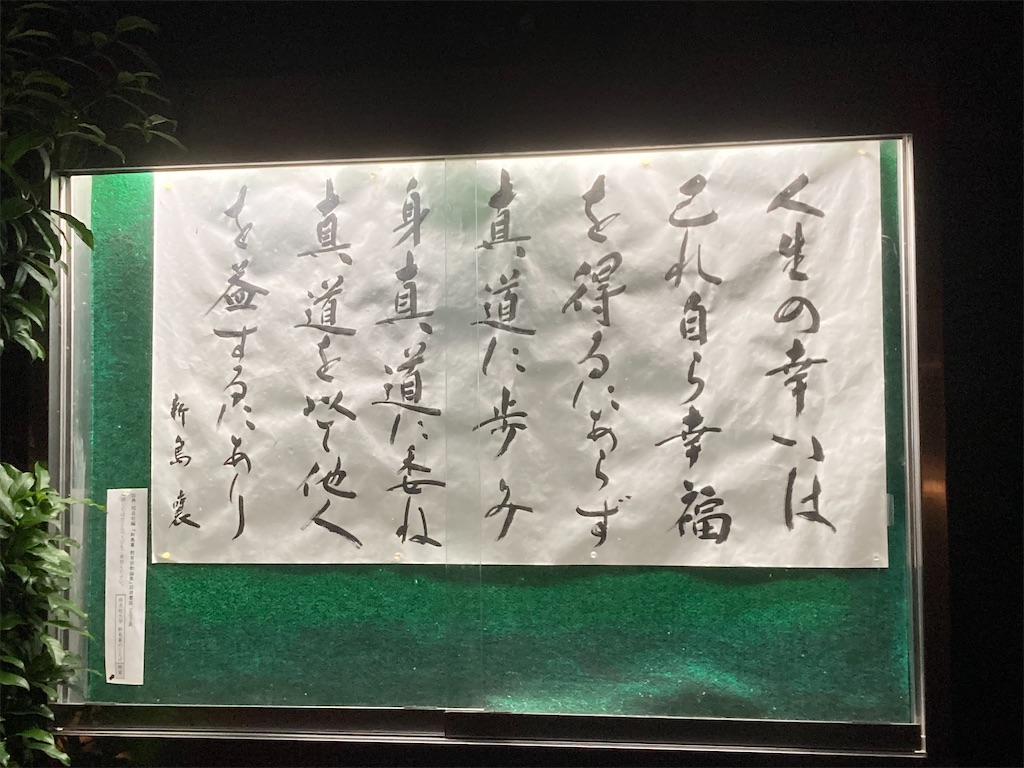 人生の幸いは
己れ自ら幸福
を得るにあらず
真道に歩み
身真道に委ね
真道を以て他人
を益するにあり
新島襄